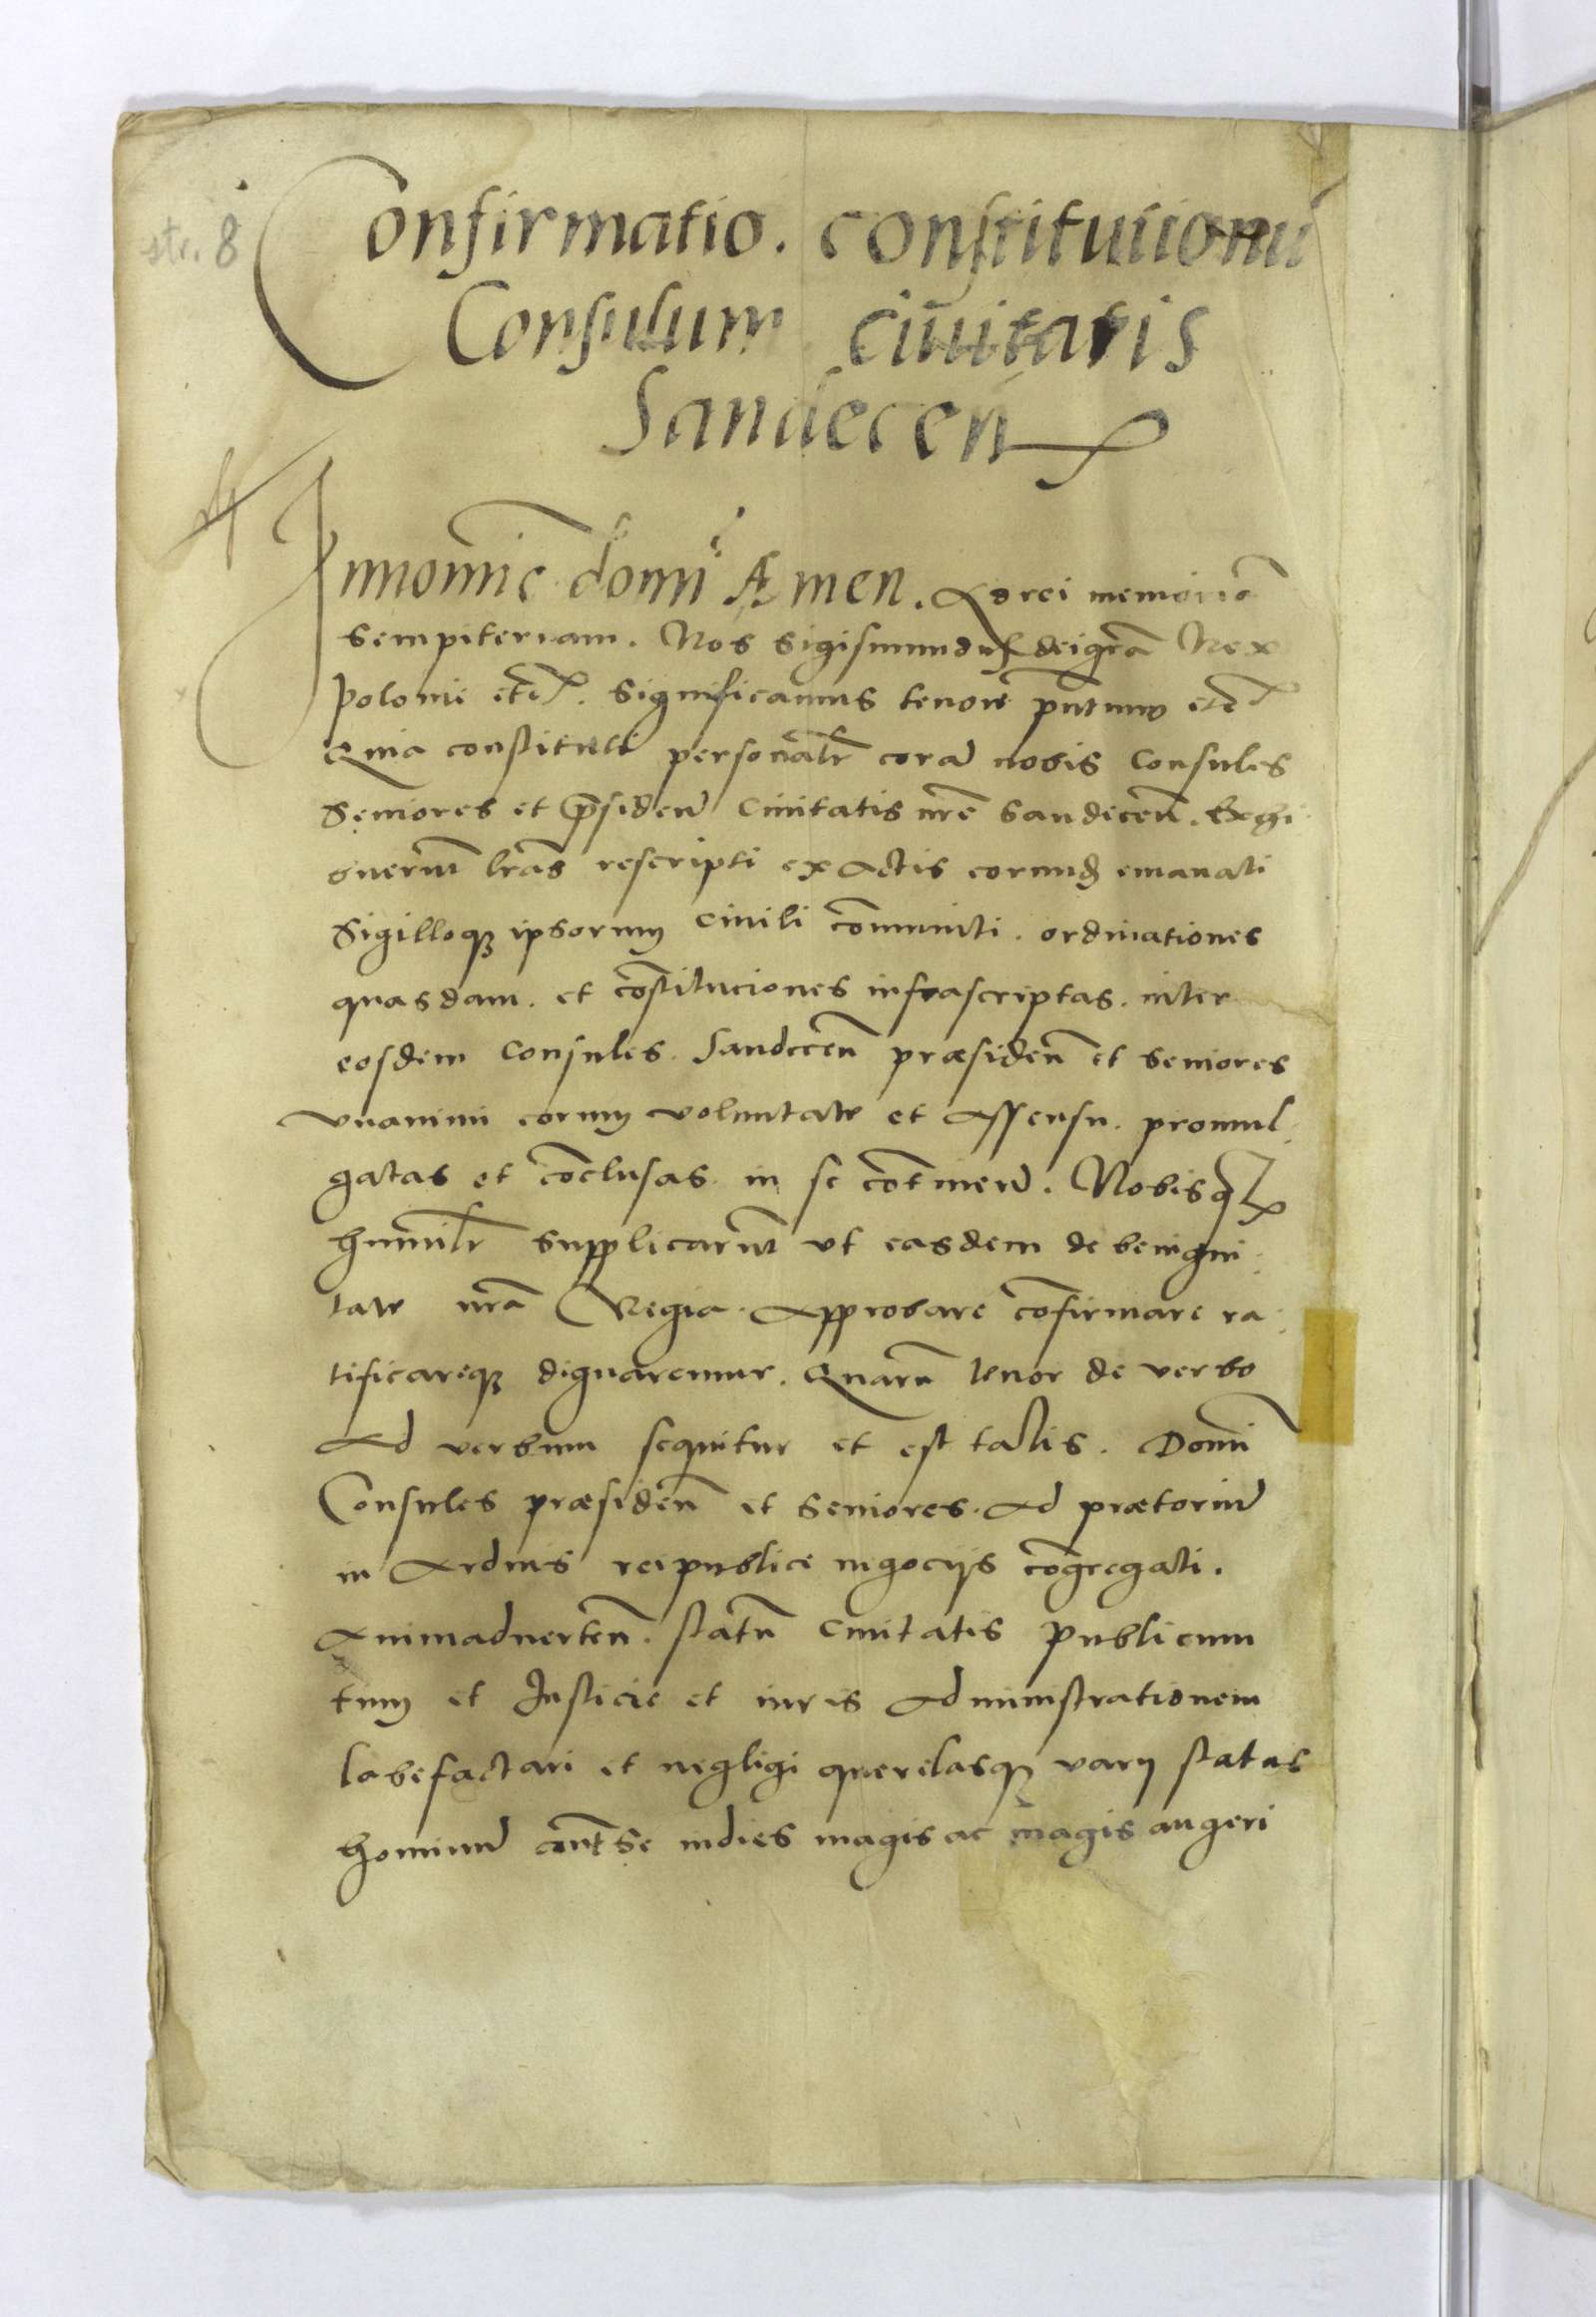 str. 8
Confirmatio. constitutionū
Consulum ciuitatis
Sandecen̄
Innomīe domī Amen. Ad rei memoriā
sempiternam. Nos Sigismundus deigrā Rex
Polonie etc. Significamus tenore pn̄tium etc
Quia constituti personalr̄ corā nobis Consules
Seniores et p̄sideñ Ciuitatis nr̄e Sandeceñ. Exhi
buerūt lrās rescripti ex Actis eorundē emanati
Sigilloqꝫ ipsorum Ciuili cōmuniti. ordinationes
quasdam. et cōstituciones infrascriptas. inter
eosdem Consules. Sandeceñ præsideñ et Seniores
vnanimi eorum voluntate et Assensu. promul
gatas et cōclusas in se cōtineñ. Nobisqꝫ
humilr̄ supplicarūt vt easdem de benigni
tate nrā Regia. Approbare cōfirmare ra
tificareqꝫ dignaremur. Quarū tenor de verbo
Ad verbum sequitur et est talis. Domī
Consules præsideñ et Seniores. Ad prætoriū
in Arduis reipublice negocijs cōgregati.
Animaduerteñ. statū Ciuitatis publicum
tum et Justicie et iuris Administrationem
labefactari et negligi querelasqꝫ varij status
hominū añt se indies magis ac magis augeri